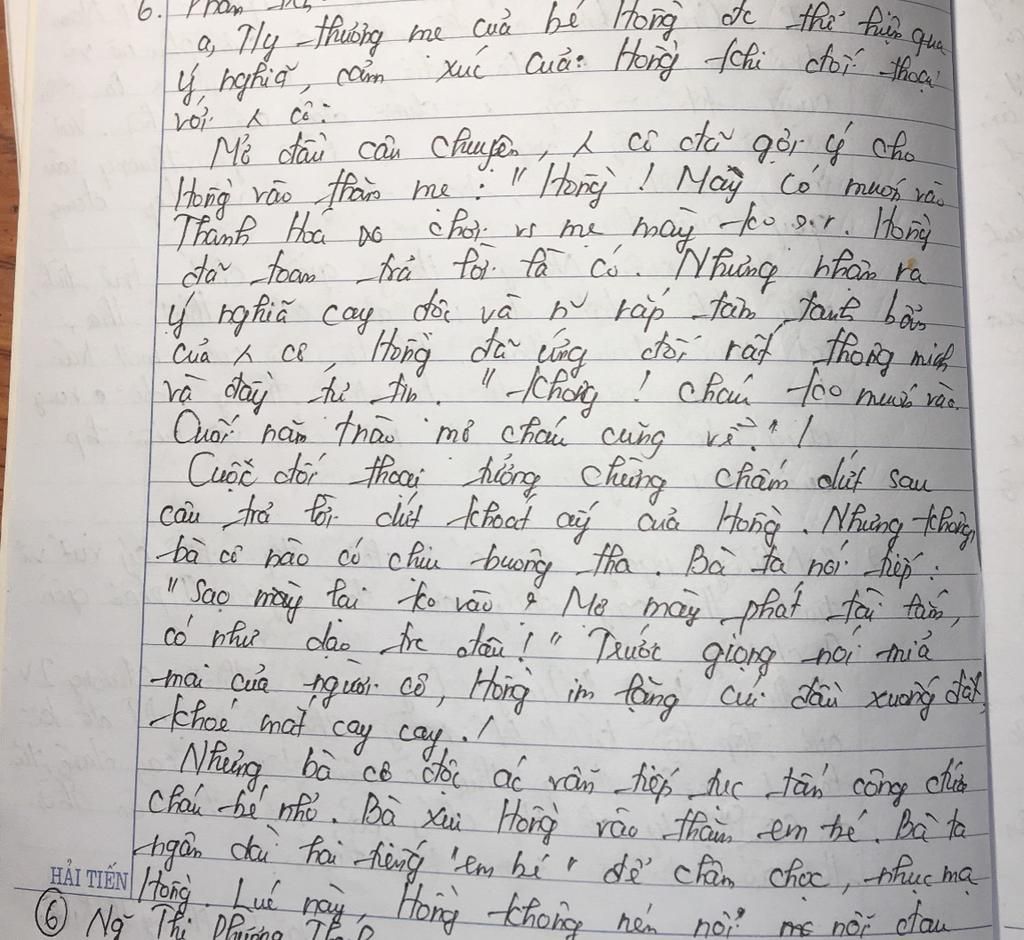 6. Phân
a, T/y thương mẹ của bé Hồng đc thể hiện qua
ý nghĩ, cảm xúc của Hồng khi đối thoại
với λ cô:
Mở đầu câu chuyện, λ cô đã gợi ý cho
Hồng vào thăm mẹ: "Hồng! Mày có muốn vào
Thanh Hoá chơi vs mẹ mày ko. Hồng
đã toan trả lời là có. Nhưng nhận ra
ý nghĩ cay độc và rắp tâm tanh bẩn
của λ cô, Hồng đã ứng đối rất thông minh
và đầy tự tin. "Không! cháu ko muốn vào.
Cuối năm thế nào mợ cháu cũng về."!
Cuộc đối thoại tưởng chừng chấm dứt sau
câu trả lời dứt khoát ấy của Hồng. Nhưng không,
bà cô nào có chịu buông tha. Bà ta nói tiếp:
"Sao mày lại ko vào? Mợ mày phát tài lắm,
có như dạo trc đâu!" Trước giọng nói mỉa
mai của người cô, Hồng im lặng cúi đầu xuống đất,
khoé mắt cay cay./
Nhưng bà cô độc ác vẫn tiếp tục tấn công
cháu bé nhỏ. Bà xui Hồng vào thăm em bé. Bà ta
ngân dài hai tiếng "em bé" để châm chọc, nhục mạ
Hồng. Lúc này, Hồng không nén nổi nỗi đau
HẢI TIẾN
6 Ng Thị Phương